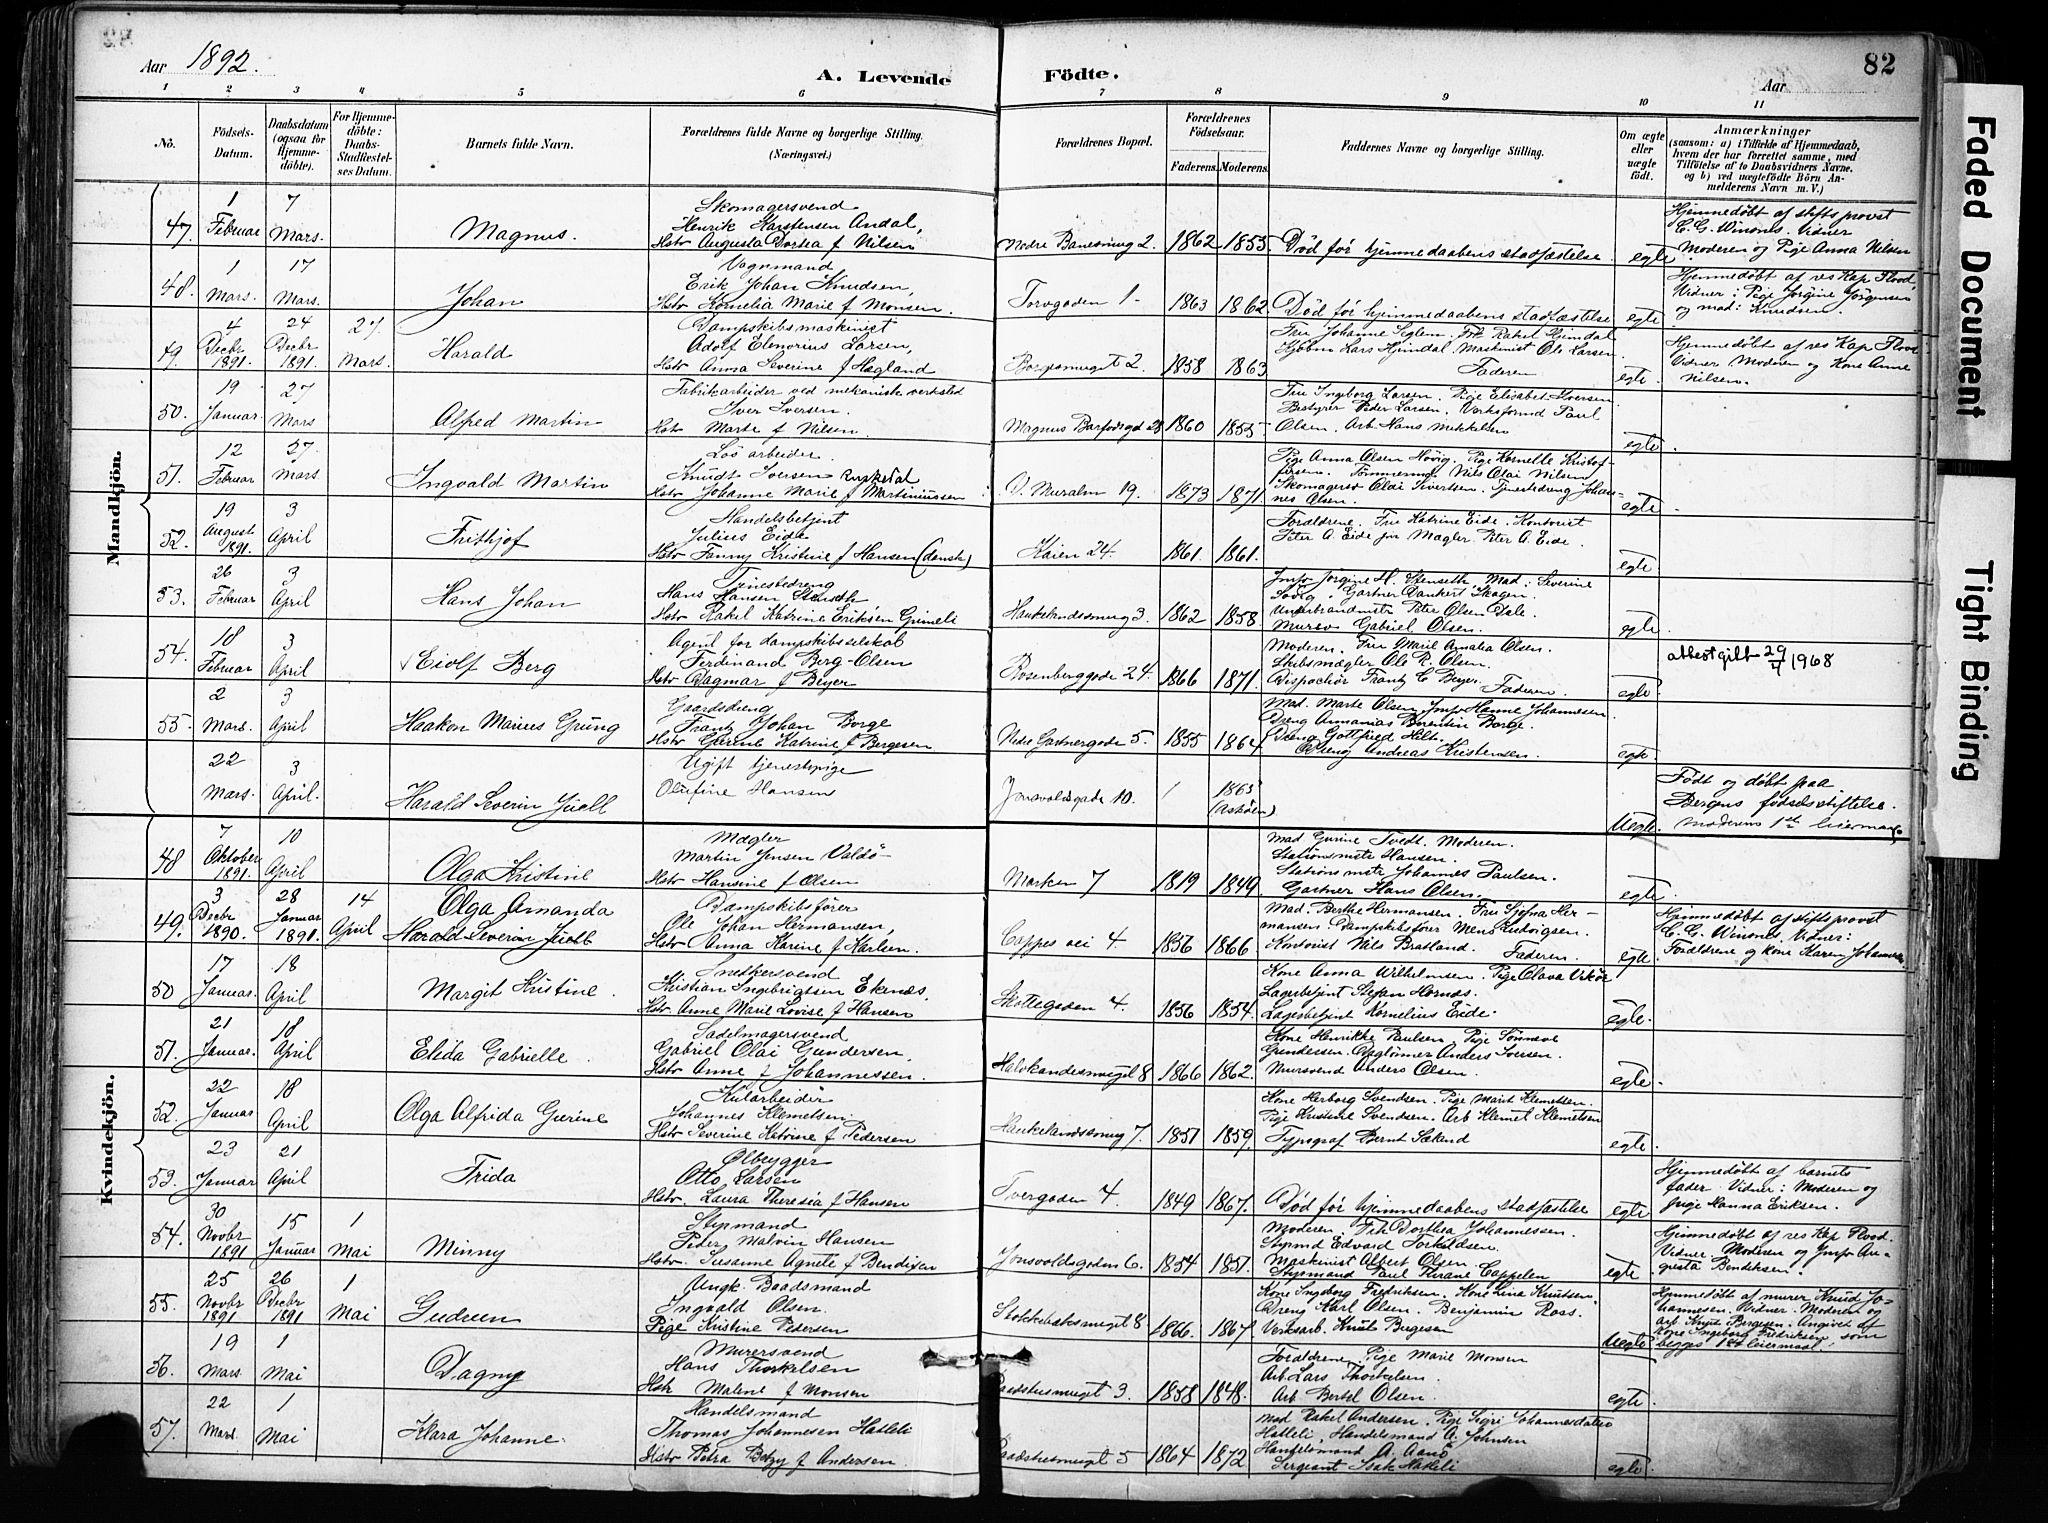 Aar 1892.
A. Levende Födte.
Aar
82
1 2 3 4 5 6 7 8 9 10 11
No.
Födsels-Datum.
Daabsdatum (ogsaa for Hjemme-döbte).
For Hjemme-döbte: Daabs-Stadfæstel-ses Datum.
Barnets fulde Navn.
Forældrenes fulde Navne og borgerlige Stilling. (Næringsvei.)
Forældrenes Bopæl.
Forældrenes Födselsaar.
Faderens. Moderens.
Faddernes Navne og borgerlige Stilling.
Om ægte eller uægte födt.
Anmærkninger
(saasom: a) i Tilfælde af Hjemmedaab, hvem der har forrettet samme, med Tilföielse af to Daabsvidners Navne, og b) ved uægtefödte Börn Anmelderens Navn m. V.)
Mandkjön.
47. 1 Februar 7 Mars. Magnus.
Skomagersvend
Henrik Karstensen Andal,
Hstr Augusta Dortea f Nilsen
Nedre 2. 1862 1855. Död før hjemmedaabens stadfæstelse egte
Hjemmedøbt af stiftsprovst
C. G. Winsnes. Vidner
Moderen og Pige Anna Nilsen
48. 1 Mars. 17 Mars. Johan
Vognmand
Erik Johan Knudsen,
Hstr Kornelia Marie f Monsen.
Torvgaden 1. 1863 1862. Död før hjemmedaabens stadfæstelse egte
Hjemmedøbt af res Kap Flood
Vidner: Pige Jorgine Jørgensen
og mad: Knudsen.
49. 4 Decbr 1891. 24 Decbr 1891. 27 Mars. Harald
Dampskibsmaskinist
Adolf Elenorius Larsen,
Hstr Anna Severine f Hægland
2. 1858 1863
Fru Johanne Seglem. Frk Rakel Hjimdal
Kjøbm Lars Hjimdal. Maskinist Ole Larsen.
Faderen egte.
Hjemmedøbt af res Kap Flood
Vidner Moderen og Kone Anne
Nilsen.
50. 19 Januar. 27 Mars Alfred Martin
Fabrikarbeider ved mekanisk verksted
Iver Iversen.
Hstr Marte f Nilsen.
Magnus Barfodsgd 28 1860 1855
Fru Ingeborg Larsen. Pige Elisabet Iversen
Bestyrer Peder Larsen. Verksformd Paul
Olsen. Arb. Hans Mikkelsen egte
51. 12 Februar 27. Mars. Ingvald Martin
Løs arbeider.
Knudt Iversen
Hstr Johanne Marie f Martiniussen
Ø. Muralm 19. 1873 1871.
Pige Anna Olsen Hovig. Pige Kornelle Kristof-
fersen. Tømmermd Nils Olai Nilsen.
Skomagersv Olai Sivertsen. Tjenestedreng Johan-
nes Olsen. egte
52. 19 August 1891. 3 April Frithjof
Handelsbetjent
Julius Eide
Hstr Fanny Kristine f Hansen (dansk)
Kaien 24. 1861. 1861.
Forældrene. Fru Katrine Eide. Kontorist
Peter A. Eide jr Mægler Peter A. Eide. egte
53. 26 Februar 3 April Hans Johan
Tjenestedreng
Hans Hansen
Hstr Rakel Katrine Eriksen Grimeli
Haukelandsveien 3. 1862 1858.
Jmfr Jørgine H. Stenseth. Mad: Severine
Gartner Dankert Skagen.
Underbrandmstr Peter Olsen Dale.
Mursv Gabriel Olsen. egte
54. 18 Februar 3 April Eiolf Berg
Agent for dampskibsselskab
Ferdinand Berg-Olsen
Hstr Dagmar f Beyer
Rosenberggade 24. 1866 1871.
Moderen. Fru Marie Amalia Olsen.
Skibsmægler Ole R. Olsen.
Dispachør Frantz C Beyer. Faderen. egte
attest gitt 29/7 1968
55. 2 Mars. 3 April Haakon Marius Grung
Gaardsdreng
Frantz Johan Borge
Hstr Gurine Katrine f Bergesen
Nedre Gartnergade 5. 1855 1864
Mad. Marte Olsen. Jmfr Hanne Johannesen.
Dreng Annanias Berentin Borge.
Dreng Gottfried Hilt.
Dreng Andreas Kristensen. egte
22 Mars. 3 April. Harald Severin Juell
Ugift tjenestepige
Olufine Hansen
Jonsvoldsgade 10. / 1865 (Askøen) Uegte.
Født og døbt paa
Bergens fødselsstiftelse.
Moderens 1ste leiermaal
Kvindekjön.
48 7 Oktober 1891. 10 April Olga Kristine
Mægler
Martin Jensen Valdö
Hstr Hansine f Olsen
Marken 7 1819 1849.
Mad Gurine Tvedt. Moderen.
Stationsmstr Hansen.
Stationsmstr Johannes Paulsen.
Gartner Hans Olsen. egte
49. 3 Decbr 1890. 28 Januar 1891. 14 April Olga Amanda
Harald Severin Juell
Dampskibsfører
Ole Johan Hermansen,
Hstr Anna Karine f Karlsen.
Cappes vei 4. 1856 1866
Mad. Berthe Hermansen. Fru Sjøfna Her-
mansen. Dampskibsfører Mens Ludvigsen.
Kontorist Nils Bratland. Faderen. egte
Hjemmedøbt af stiftsprovst
C. G. Winsnes. Vidner:
Forældrene og kone Karen Johannesen.
50 17 Januar. 18 April Margit Kristine.
Snedkersvend
Kristian Ingebrigtsen Ekenæs,
Hstr Anne Marie Lovise f Hansen
Skottegaden 4. 1856 1854.
Kone Anna Wilhelmsen. Pige Olava Vikør
Lagerbetjent Stefan Hornæs.
Lagerbetjent Kornelius Eide. egte.
51. 21 Januar. 18 April Elida Gabrielle.
Sadelmagersvend
Gabriel Olai Gundersen,
Hstr Anne f Johannessen.
Halvkandesmuget 8 1866 1862.
Kone Henrikke Paulsen. Pige Sönneve
Gundersen. Anders Iversen.
Mursvend Anders Olsen. egte
52. 22 Januar 18 April Olga Alfrida Gurine
Kularbeider
Johannes Klemetsen.
Hstr Severine Katrine f Pedersen
Haukelandsveien 7. 1851 1859.
Kone Herborg Svendsen. Pige Marit Klemetsen.
Pige Kristine Svendsen. Arb Klemet Klemetsen
Typograf Bernt egte.
53. 23 Januar 21 April Frida
Ølbrygger
Otto Larsen
Hstr. Laura Theresia f Hansen
Torvgaden 4. 1849 1867. Död før hjemmedaabens stadfæstelse egte
Hjemmedøbt af barnets
fader. Vidner: Moderen og
Pige Hanna Eriksen.
54. 30 Novbr 1891 15 Januar 1 Mai Minny
Styrmand
Peder Malvin Hansen
Hstr. Susanne Agnete f Bendixen
Jonsvoldsgaden 6. 1854 1851.
Moderen. Frk Dorthea Johannessen.
Styrmd Edvard Torkildsen.
Maskinist Albert Olsen.
Styrmand Paul Thrane Cappelen egte
Hjemmedøbt af res Kap Flood.
Vidner. Moderen og Jmfr Au-
gusta Bendiksen.
55. 25 Novbr 1891 26 Decbr 1891 1 Mai Gudrun
Ungk. Baadsmand
Ingvald Olsen.
Pige Kristine Pedersen
8 1866. 1867
Kone Ingeborg Fredriksen. Kone Lina Knudsen
Dreng Karl Olsen. Benjamin Ross.
Verksarb. Knut Bergesen Uegte
Hjemmedøbt af murer Knud Jo-
hannesen. Vidner. Moderen og
arb Knut Bergesen. Angivet af
Kone Ingeborg Fredriksen som
begges 1ste leiermaal.
56. 19 Mars. 1 Mai Dagny
Murersvend
Hans Thorkelsen
Hstr Malene f Monsen
3. 1858 1848.
Forældrene. Pige Marie Monsen
Arb. Lars Thorkelsen.
Arb Bertel Olsen. egte
57. 22 Mars. 1 Mai Klara Johanne.
Handelsmand
Thomas Johannesen Hatleli
Hstr Petra Betzy f Andersen.
5 1864 1872
Mad Rakel Andersen. Pige Sigri Johannesdatter
Hatleli. Handelsmand A. Johnsen
Handelsmand A. Aanö
Sergeant Isak Hatleli egte.
Faded Document
Tight Binding